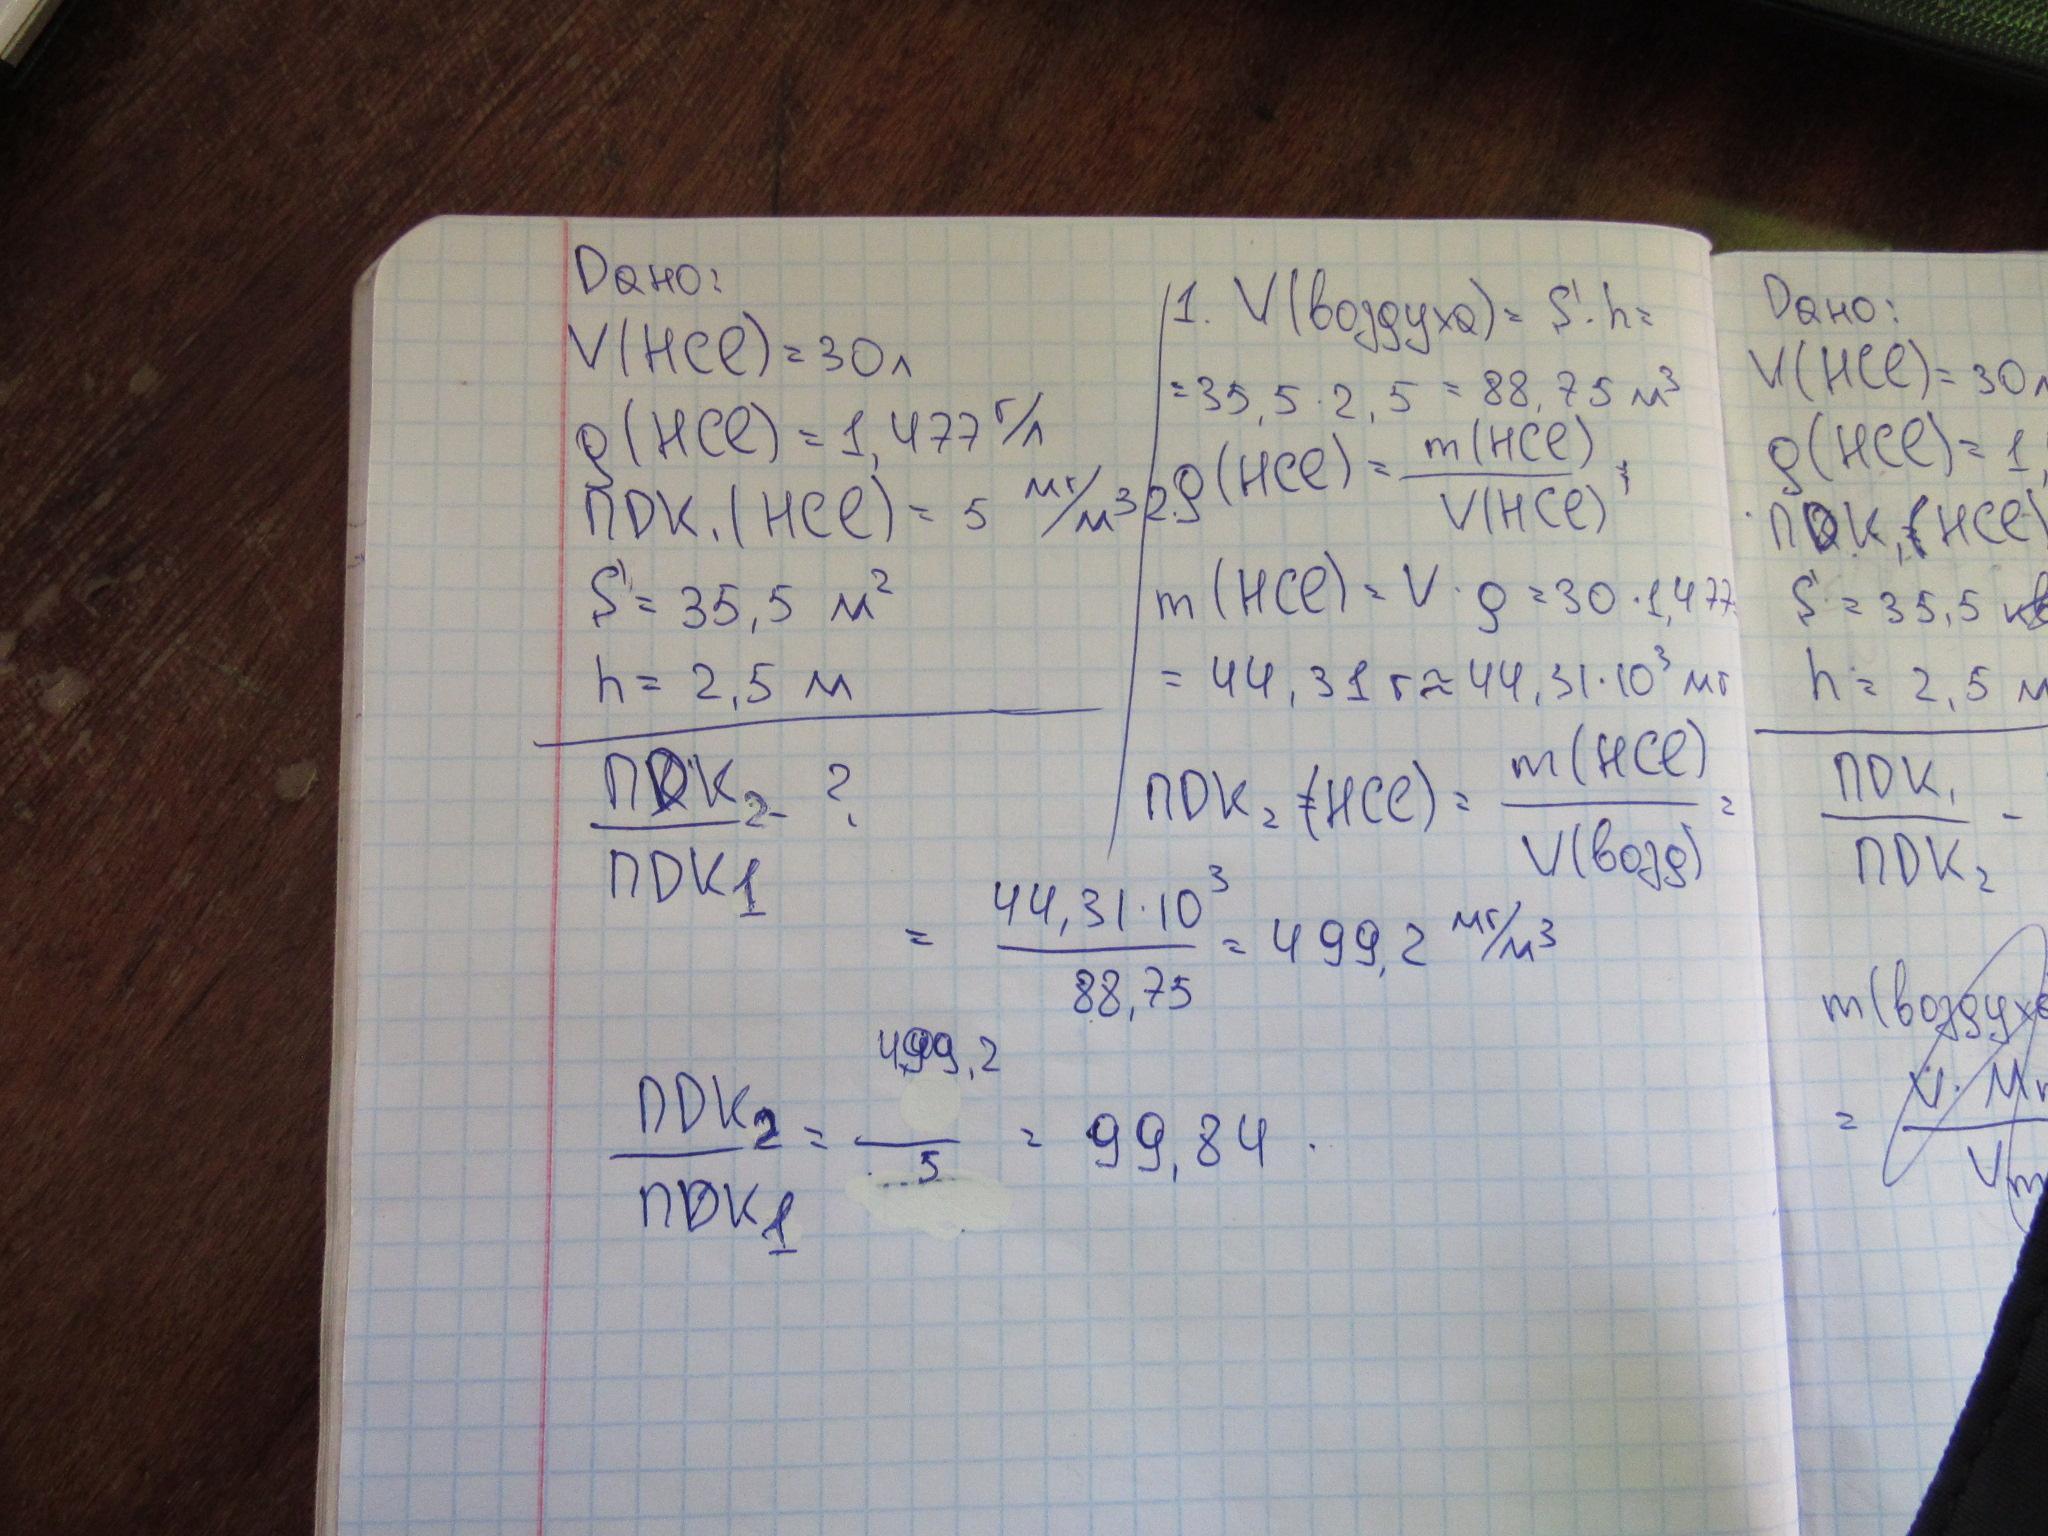 Дано:
V(HCl) = 30 л
ρ(HCl) = 1,477 г/л
ПДК₁(HCl) = 5 мг/м³
S = 35,5 м²
h = 2,5 м
ПДК₂ - ?
ПДК1
1. V(воздуха) = S·h =
= 35,5·2,5 = 88,75 м³
2. ρ(HCl) = m(HCl)
V(HCl) ;
m(HCl) = V·ρ = 30·1,477
= 44,31 г ≈ 44,31·10³ мг
ПДК₂(HCl) = m(HCl) =
V(возд)
= 44,31·10³ = 499,2 мг/м³
88,75
499,2
ПДК₂ = = 99,84.
5
ПДК1
Дано:
V(HCl) = 30 л
ρ(HCl) = 1,
ПДК₁(HCl)
S = 35,5
h = 2,5 м
ПДК₁ -
ПДК₂
m(воздуха
= V·M
Vm